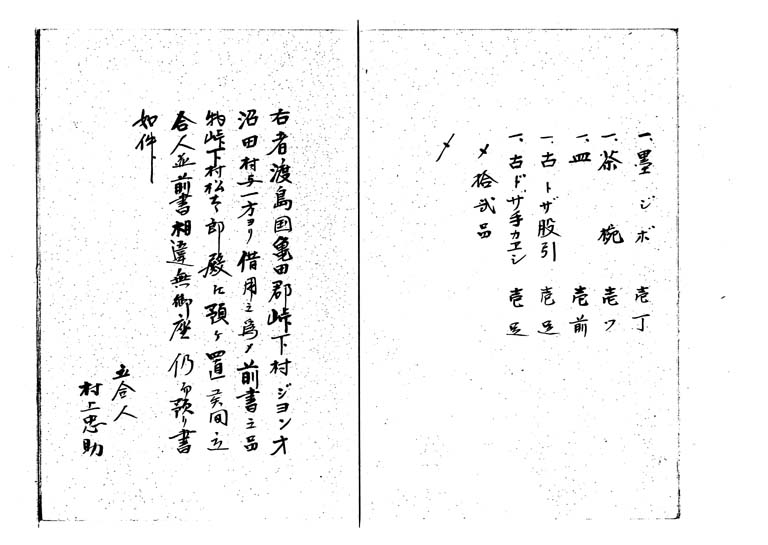 一、墨ジボ 壱丁
一、茶椀 壱ツ
一、皿 壱前
一、古トザ股引 壱足
一、古ドザ手カヱシ 壱足
〆拾弐品
〆
右者渡島国亀田郡峠下村ジヨンオ
沼田村与一方ヨリ借用之為メ前書之品
物峠下村松太郎殿に預ケ置実間立
合人並前書相違無御座仍而預り書
如件
立合人
村上忠助